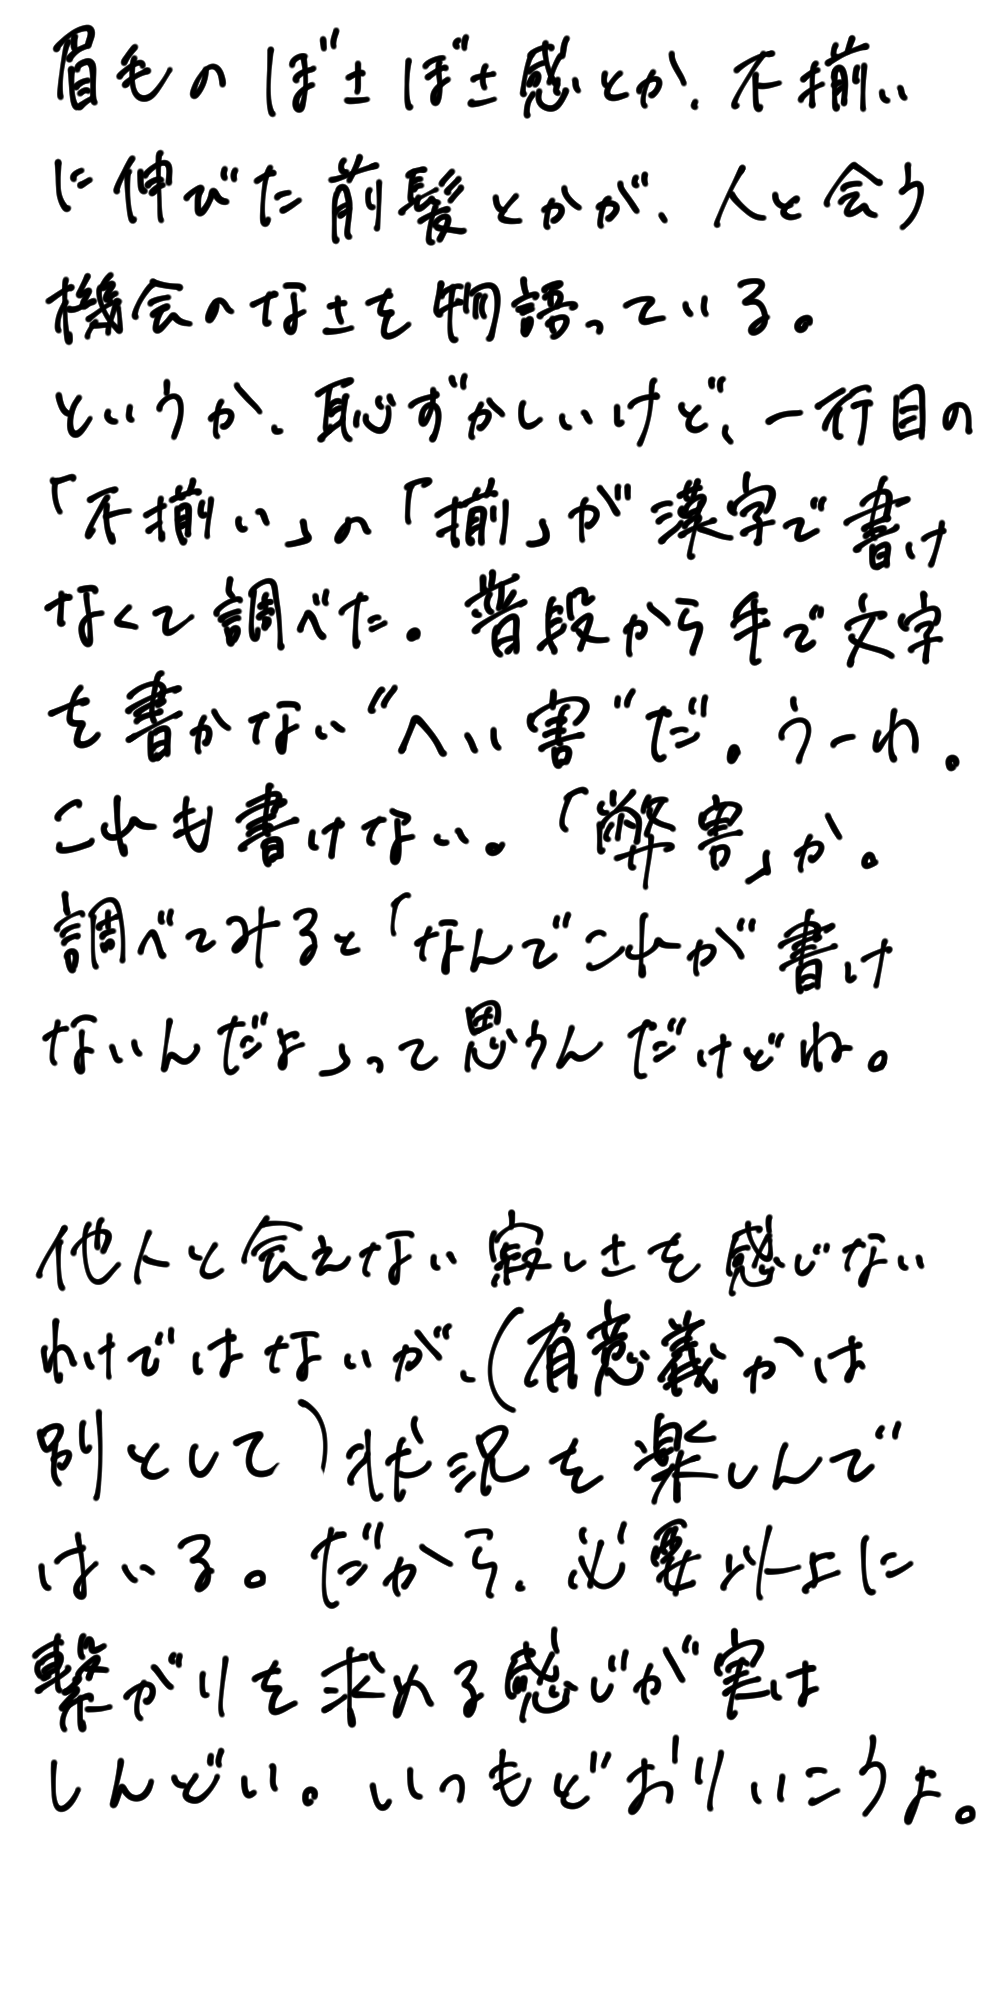 眉毛のぼさぼさ感とか、不揃い
に伸びた前髪とかが、人と会う
機会のなさを物語っている。
というか、恥ずかしいけど、一行目の
「不揃い」の「揃」が漢字で書け
なくて調べた。普段から手で文字
を書かない“へい害”だ。うーわ。
これも書けない。「弊害」か。
調べてみると「なんでこれが書け
ないんだよ」って思うんだけどね。
他人と会えない寂しさを感じない
わけではないが、(有意義かは
別として)状況を楽しんで
はいる。だから、必要以上に
繋がりを求める感じが実は
しんどい。いつもどおりいこうよ。